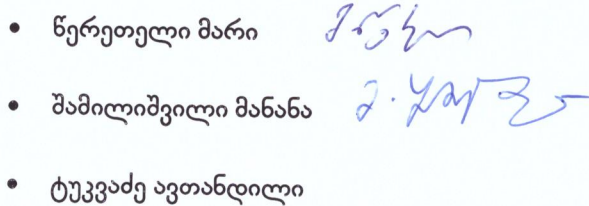 • წერეთელი მარი
• შამილიშვილი მანანა
• ტუკვაძე ავთანდილი